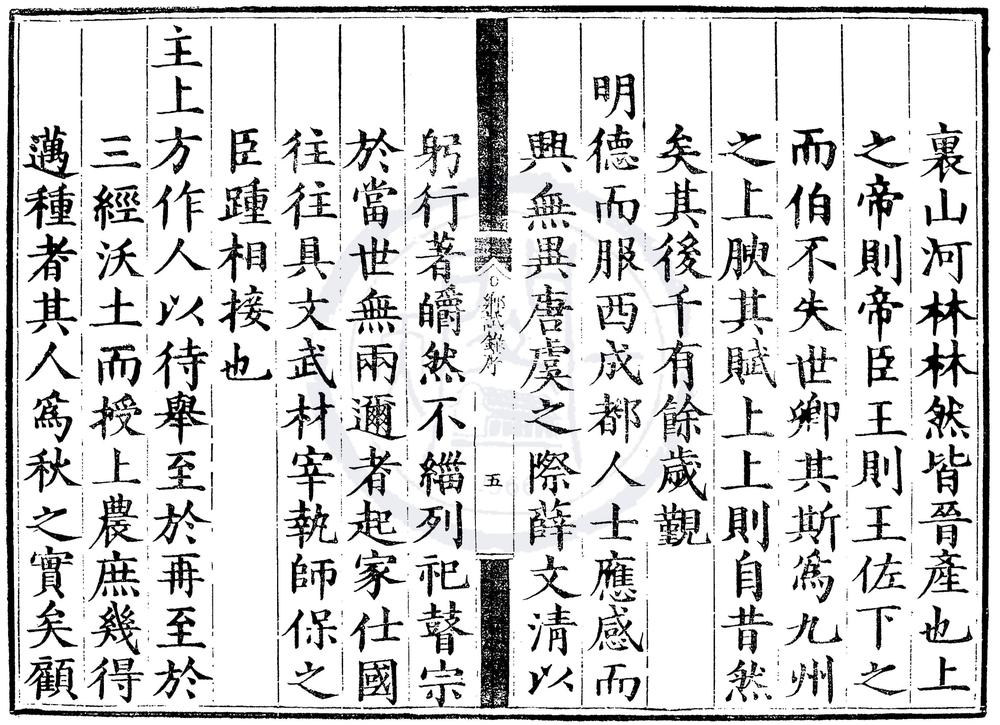 裏山河林林然皆晉產也上
之帝則帝臣王則王佐下之
而伯不失世卿其斯爲九州
之上腴其賦上上則自昔然
矣其後千有餘歲覲
明德而服西成都人士應感而
興無異唐虞之際薛文清以
鄉試錄序
五
躬行著皭然不緇列祀瞽宗
於當世無兩邇者起家仕國
往往具文武材宰執師保之
臣踵相接也
主上方作人以待舉至於再至於
三經沃土而授上農庶幾得
邁種者其人爲秋之實矣顧